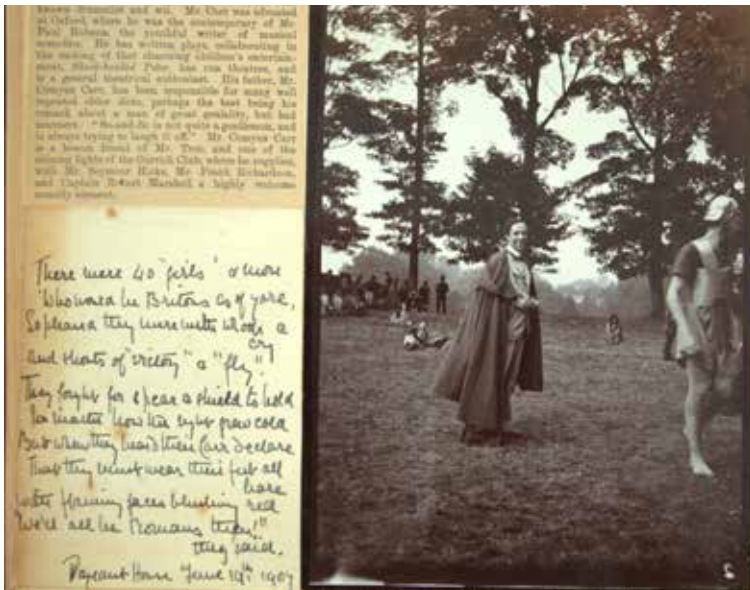 known dramatist and wit. Mr. Carr was educated
at Oxford, where he was the contemporary of Mr.
Paul Rubens, the youthful writer of musical
comedies. He has written plays, collaborating in
the making of that charming children's entertain-
ment, Shock-headed Peter, has run theatres, and
is a general theatrical enthusiast. His father, Mr.
Comyns Carr, has been responsible for many well
repeated older dicta, perhaps the best being his
remark about a man of great geniality, but bad
manners: "So-and-So is not quite a gentleman, and
is always trying to laugh it off." Mr. Comyns Carr
is a bosom friend of Mr. Tree, and one of the
shining lights of the Garrick Club, where he supplies,
with Mr. Seymour Hicks, Mr. Frank Richardson,
and Captain Robert Marshall a highly welcome
comedy element.
There were 40 "girls" & more
Who would be Britons as of yore,
So pleased they were with whoops a
cry
and shouts of "victory" a "fly".
They fought for spear & shield to hold
No matter how the night grew cold
But when they heard their Carr declare
That they must wear their feet all
bare
with flaming faces blushing red
"We'll all be Romans then!"
they said.
Pageant House June 19th 1907